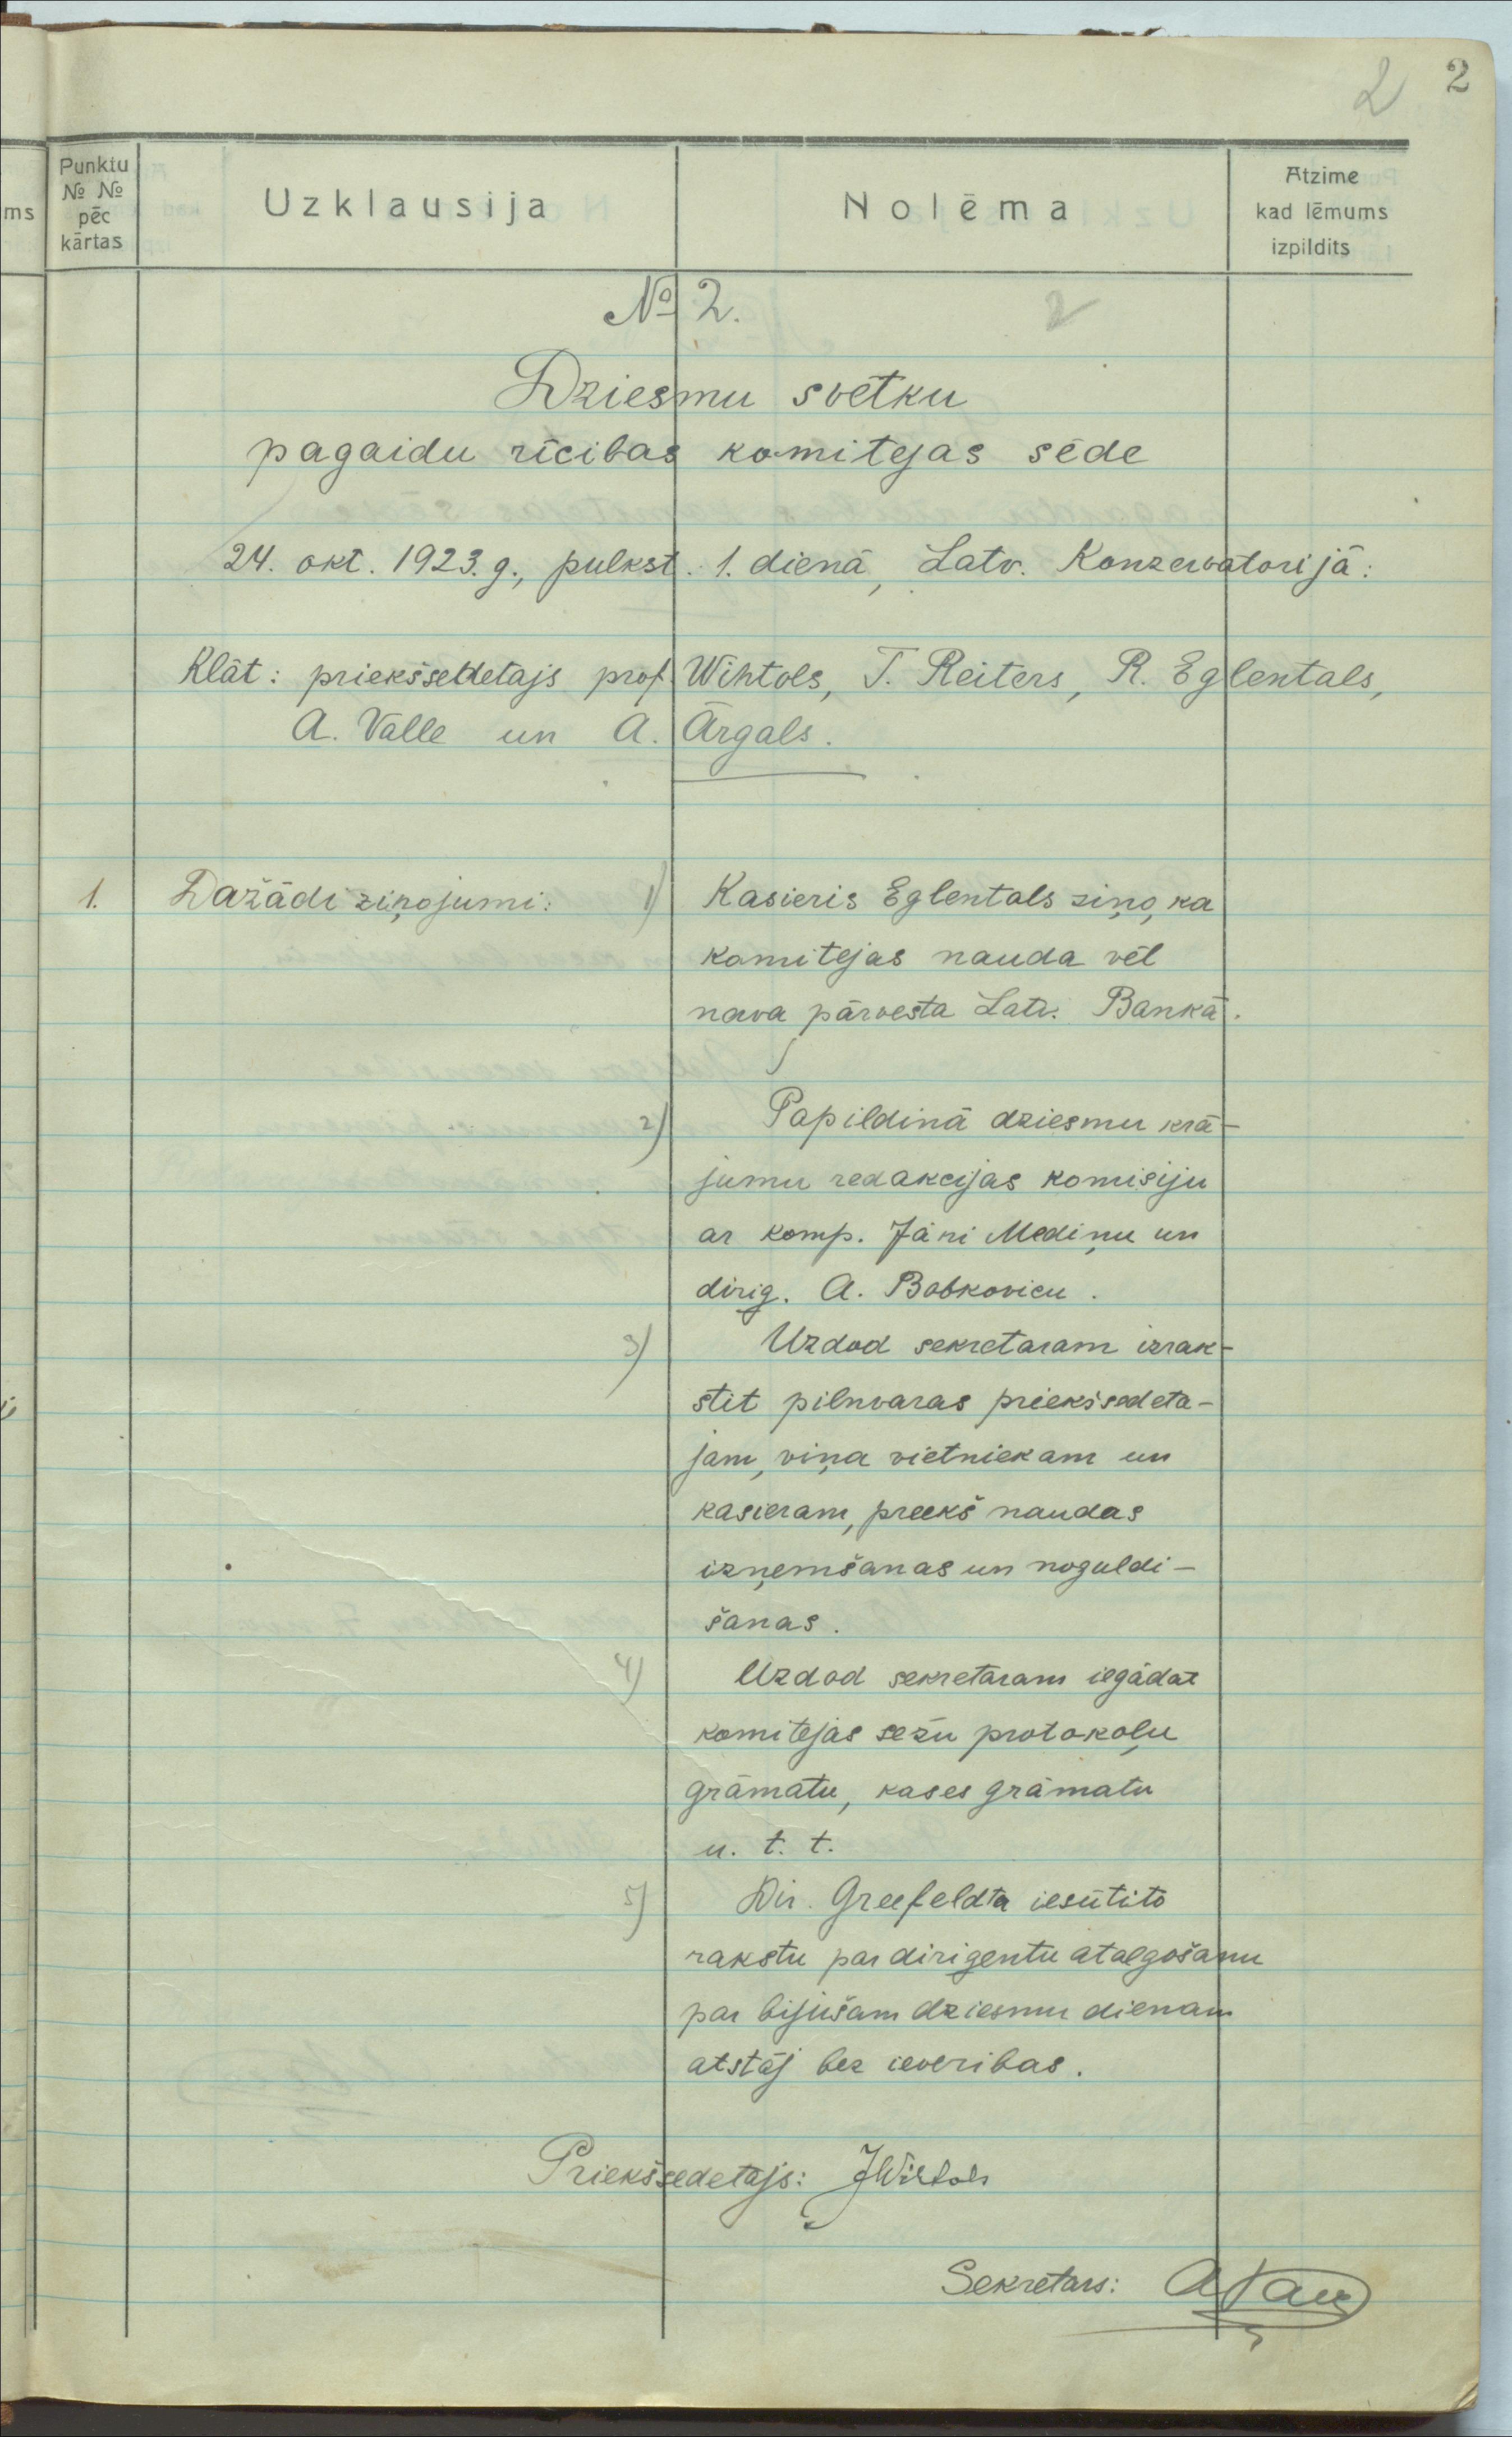 2 2
ms
Punktu
№ №
pēc
kārtas
Uzklausija
Nolēma
Atzime
kad lēmums
izpildits
№ 2.
2
Dziesmu svētku
pagaidu rīcibas komitejas sēde
24. okt. 1923. g., pulkst. 1. dienā, Latv. Konzervatorijā:
Klāt: priekšsētdetajs prof. Wihtols, T. Reiters, R. Eglentals,
A. Valle un A. Ārgals.
1. Dažādi ziņojumi: 1) Kasieris Eglentals ziņo, ka
komitejas nauda vēl
nava pārvesta Latv. Bankā.
2) Papildinā dziesmu krā-
jumu redakcijas komisiju
ar komp. Jāni Mediņu un
dirig. A. Bobkovicu.
3) Uzdod sekretaram izrak-
stit pilnvaras priekšsedeta-
jam, viņa vietniekam un
kasieram, preekš naudas
izņemšanas un noguldi-
šanas.
4) Uzdod sekretāram iegādat
komitejas sežu protokoļu
grāmatu, kases grāmatu
u. t. t.
5) Dir. Greefeldta iesūtito
rakstu par dirigentu atalgošanu
par bijušam dziesmu dienam
atstāj bez ieveribas.
Priekšsedetajs: JWihtols
Sekretars: